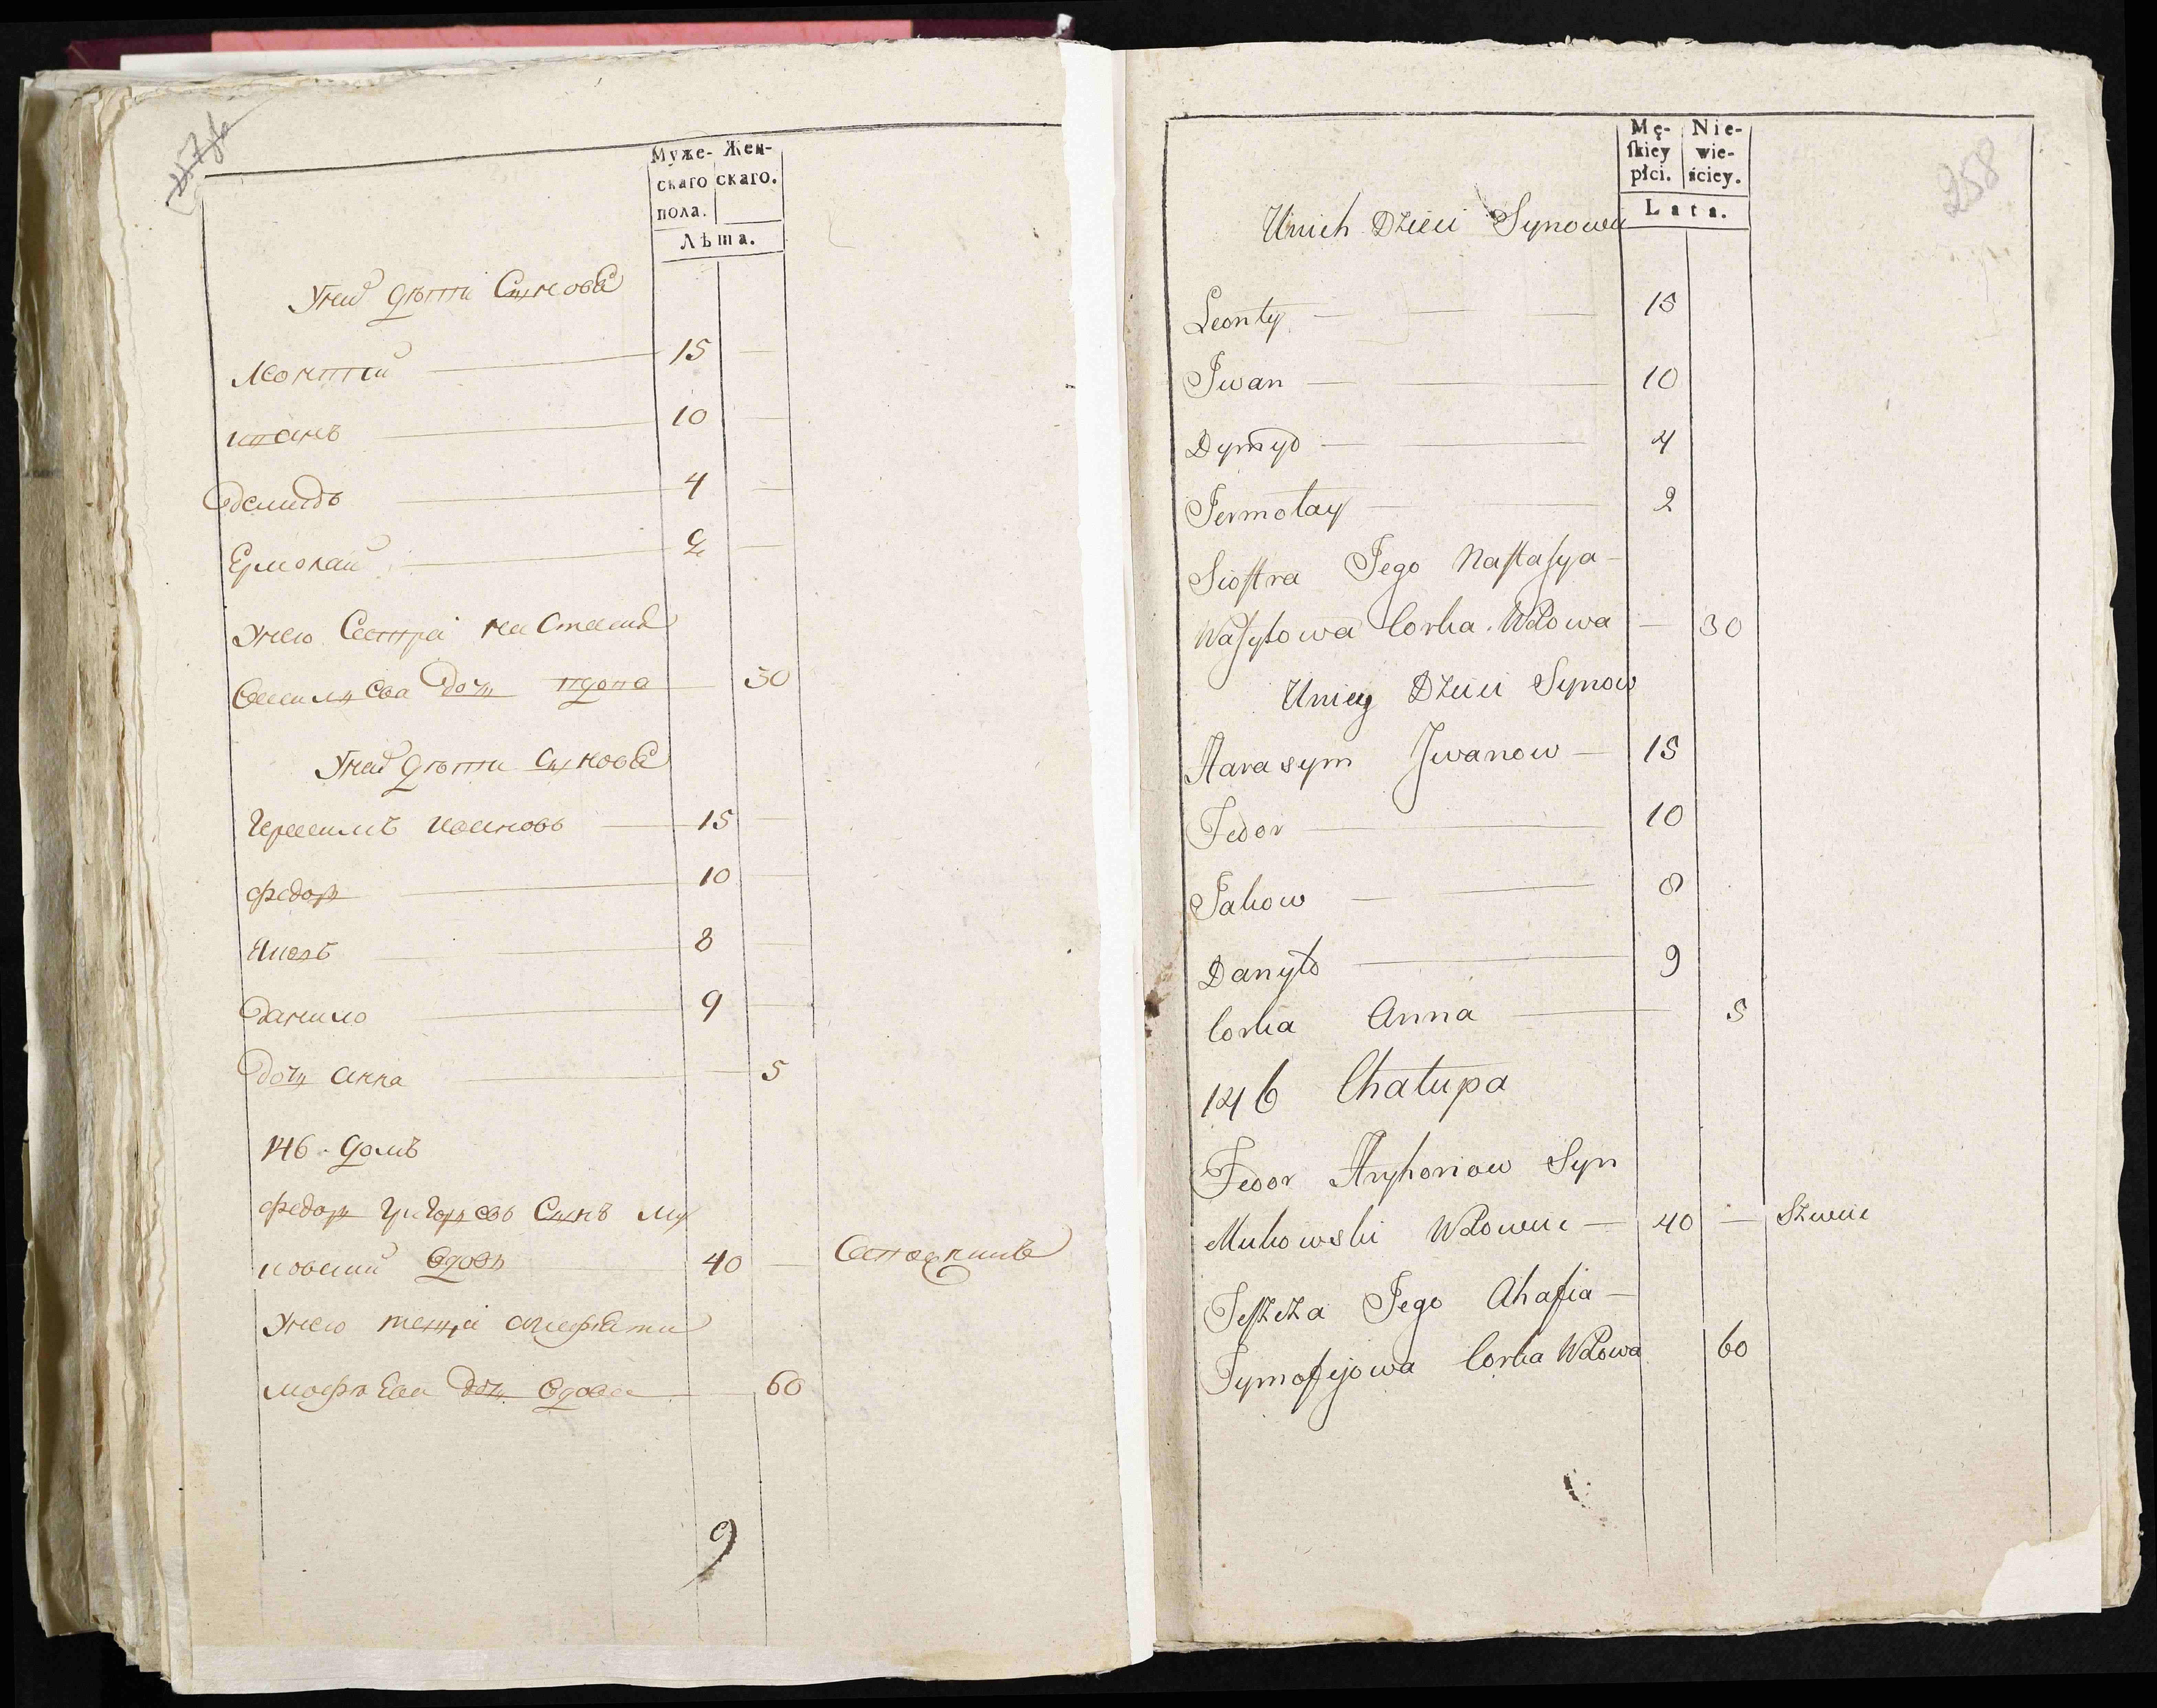 Муже- Жен-
скаго скаго.
пола.
Лѣта.
Уних дѣти Синове
Леонтий 15
иванъ 10
Демидъ 4
Ермолай 2
Унего Сестра настасия
Василцева дочь вдова 30
Уней дѣти синове
Герасимъ ивановъ 15
федоръ 10
Яковъ 8
Данило 9
дочь анна 5
146. домъ
федоръ григорьевъ Синъ му
ковский вдовъ 40 Сапожникъ
Унего теща агафия ти
мофѣева дочь вдова 60
9
258
Mę- Nie-
ſkiey wie-
płci. ściey.
Lata.
Unich Dzieci Synowie
Leonty 15
Iwan 10
Dymyd 4
Jermołay 2
Sioſtra Jego Naſtaſya
Waſylowa Corka Wdowa 30
Uniey Dzieci Synow
Harasym Iwanow 15
Fedor 10
Jakow 8
Danyło 9
Corka Anna 5
146 Chałupa
Fedor Hryhoriow Syn
Mukowski Wdowiec 40 Szwiec
Teſzcza Jego Ahafia
Tymofijowa Corka Wdowa 60